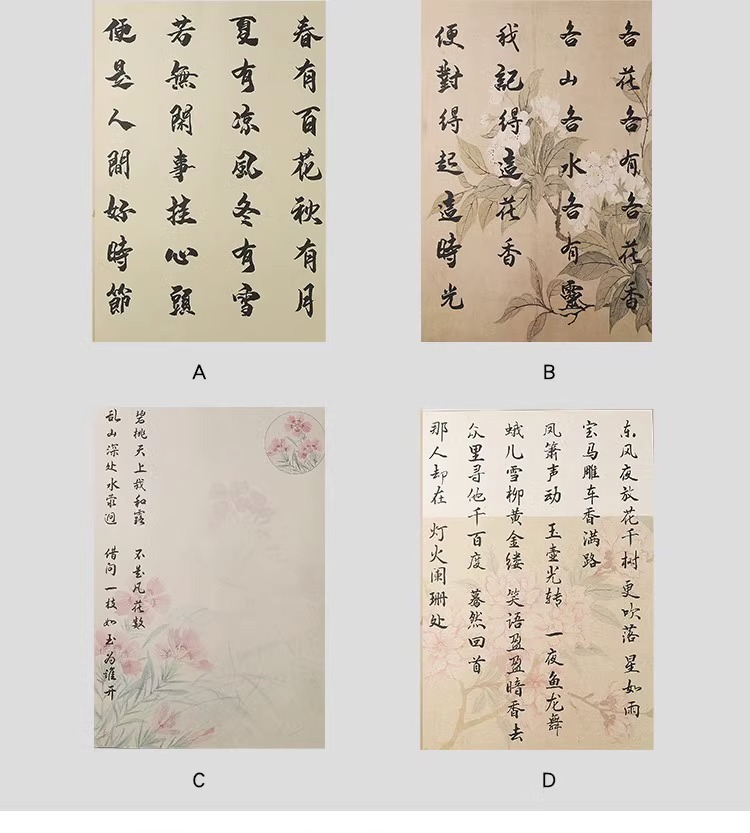 春有百花秋有月
夏有凉風冬有雪
若無閑事挂心頭
便是人間好時節
A
各花各有各花香
各山各水各有靈
我記得這花香
便對得起這時光
B
碧桃天上栽和露 不是凡花数
乱山深处水萦迴 借问一枝如玉为谁开
C
东风夜放花千树 更吹落 星如雨
宝马雕车香满路
凤箫声动 玉壶光转 一夜鱼龙舞
蛾儿雪柳黄金缕 笑语盈盈暗香去
众里寻他千百度 蓦然回首
那人却在 灯火阑珊处
D